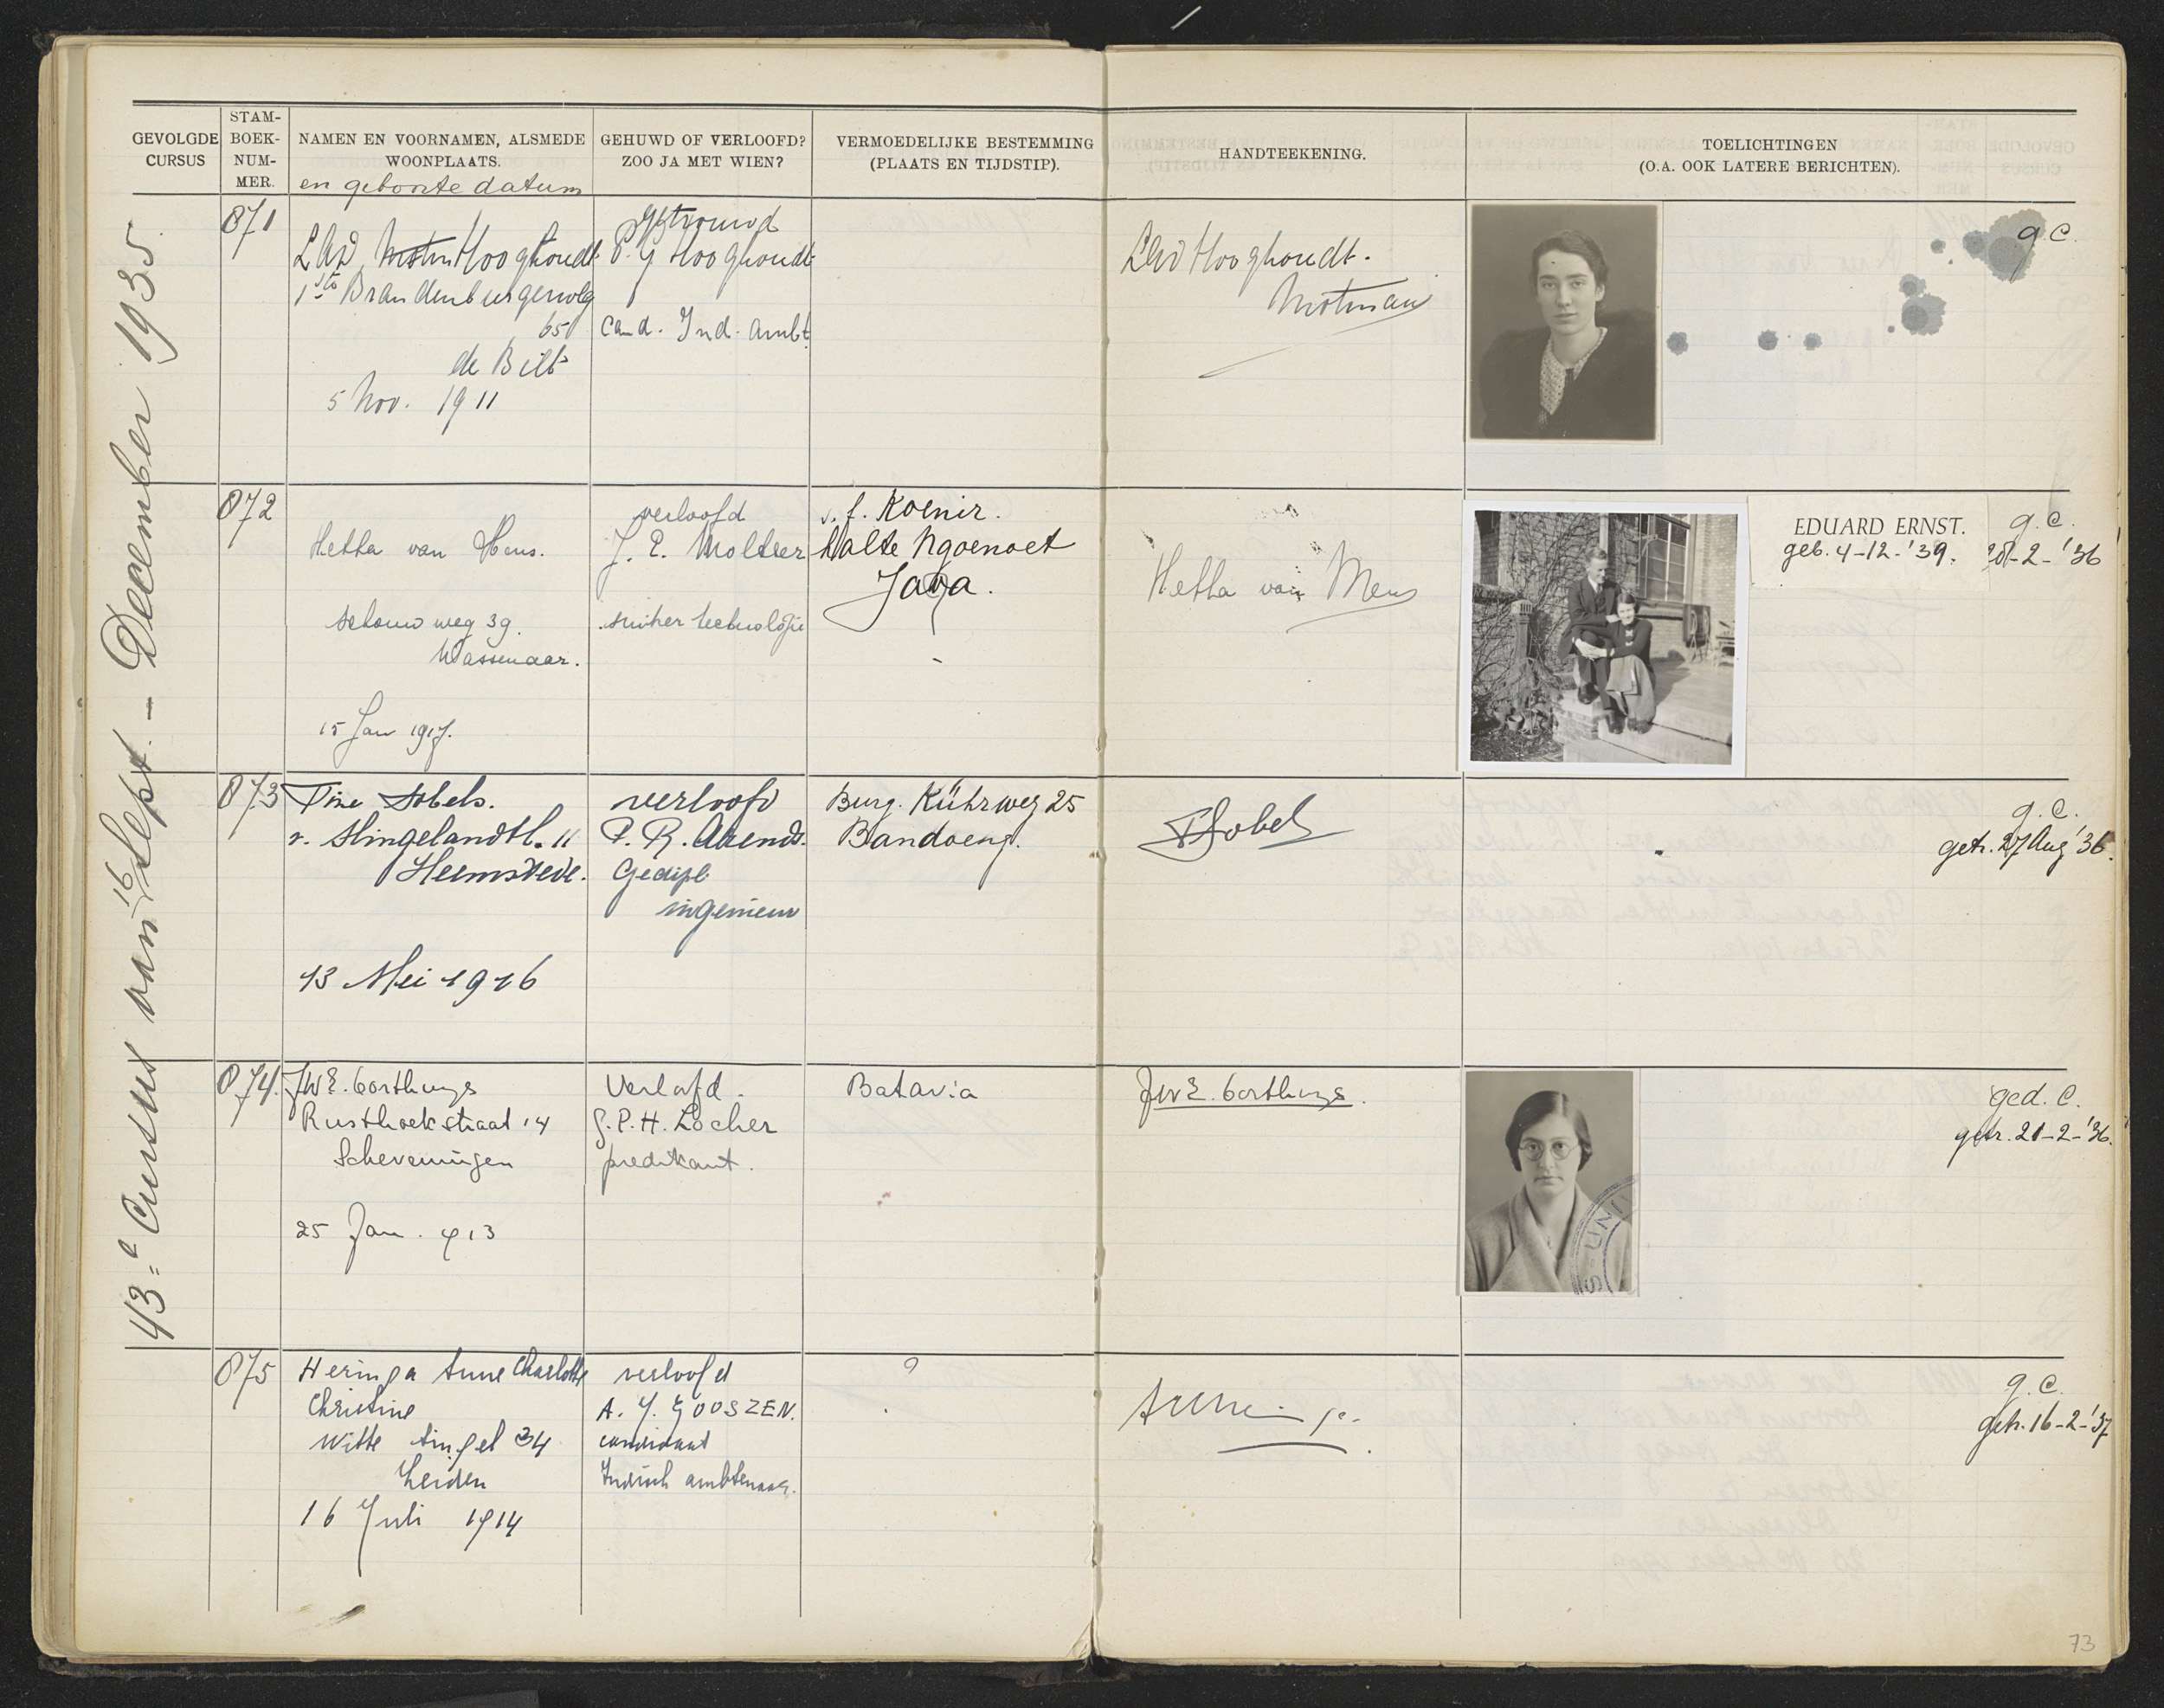 GEVOLGDE CURSUS
STAM-BOEK-NUM-MER.
NAMEN EN VOORNAMEN, ALSMEDE WOONPLAATS.
en geboorte datum
GEHUWD OF VERLOOFD? ZOO JA MET WIEN?
VERMOEDELIJKE BESTEMMING (PLAATS EN TIJDSTIP).
HANDTEEKENING.
TOELICHTINGEN (O.A. OOK LATERE BERICHTEN).
43e Cursus van 16 Sept. - December 1935.
871
Hooghoudt
1ste Brandenburgerweg
65
de Bilt
5 Nov. 1911
Getrouwd
P. G Hooghoudt
cand. Ind. Ambt.
Hooghoudt.
Motman
g.c.
872
Hetha van
Schouwweg 39.
Wassenaar.
15 Jan 1917.
verloofd
J. E. Moltzer
suiker technologie
s. f. Koenir.
halte Ngoenoet
Java.
Hetha van
EDUARD ERNST.
geb. 4-12-'39.
g.c.
-2-'36
873
Tine Sobels.
v. Slingelandtl. 11
Heemstede.
13 Mei 1916
verloofd
P. R. Arends.
Gedipl
ingenieur
Burg. Kührweg 25
Bandoeng.
TSobels
g.c.
getr. 27 Aug '36.
874.
JWE.
Rusthoekstraat 14
Scheveningen
25 Jan. 913
Verloofd.
G.P.H. Locher
predikant.
Batavia
JWE.
S - UNI
ged. c.
getr. 21-2-'36.
875
Heringa Anne Charlotte
Christine
Witte Singel 34
Leiden
16 Juli 1914
verloofd
A. J. GOOSZEN.
candidaat
Indisch ambtenaar.
?
g.c.
getr. 16-2-'37
73